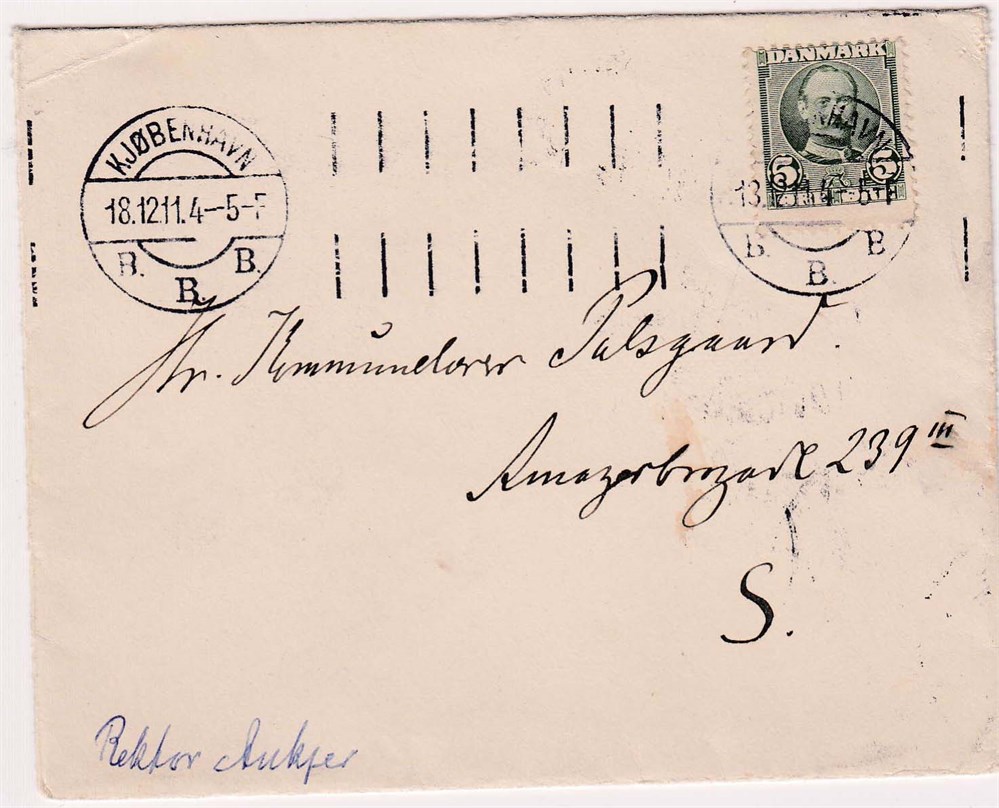 DANMARK
5 5
KJØBENHAVN
18.12.11.4-5-F
B. B. B.
Hr. Kommunelærer Palsgaard.
Amagerbrogade 239 III
S.
Rektor